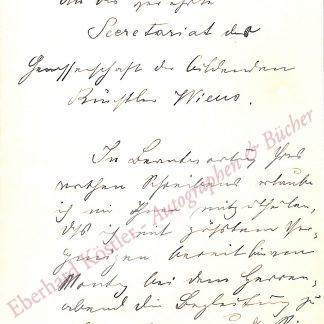 An das verehrte
Secretariat der
Genossenschaft der bildenden
Künstler Wiens.
In Beantwortung Ihres
werthen Schreibens erlaube
ich mir Ihnen mitzutheilen,
daß ich mit größtem Ver-
gnügen bereit bin am
Montag bei dem Herren-
abend die Begleitung zu
Eberhard Köstler Autographen & Bücher